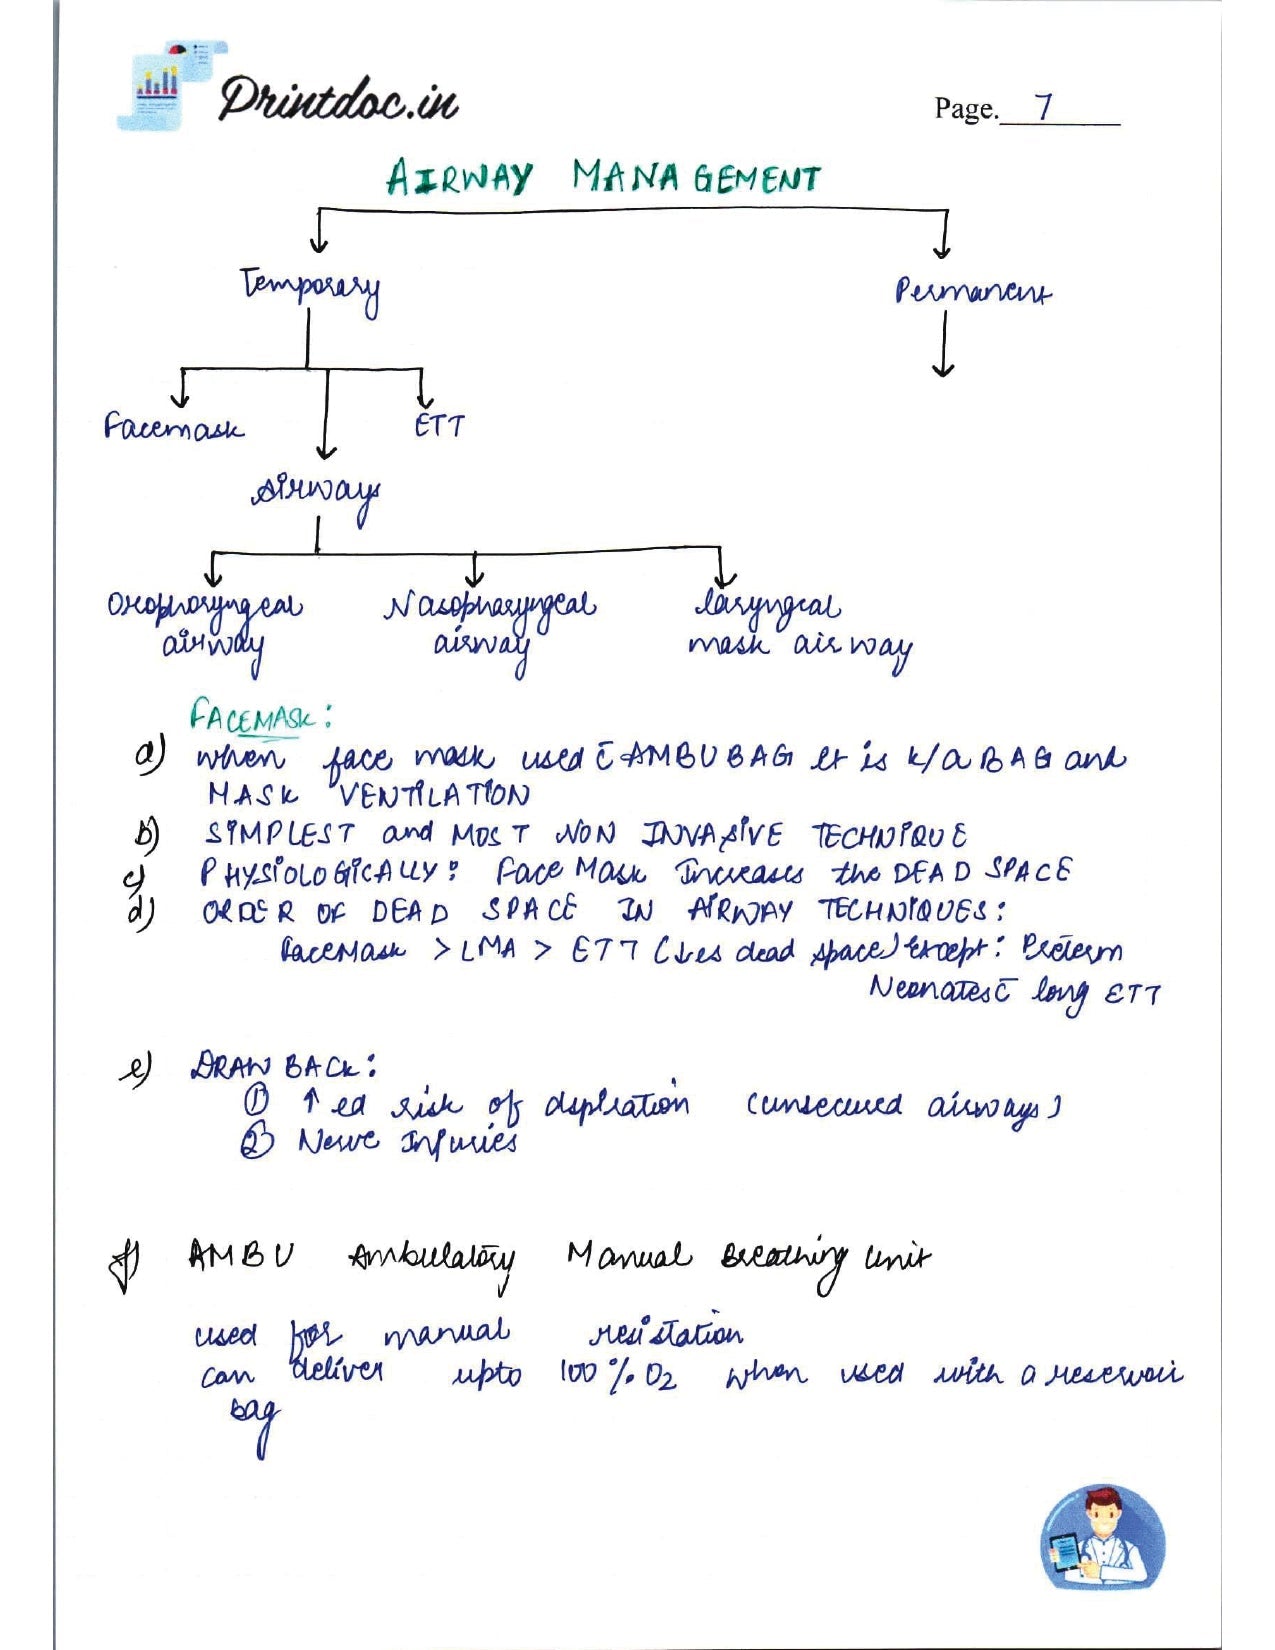 Printdoc.in
Page. 7
AIRWAY MANAGEMENT
Temporary Permanent
Facemask ETT
Airways
Oropharyngeal Nasopharyngeal laryngeal
airway airway mask airway
FACEMASK:
a) when face mask used c̄ AMBU BAG it is k/a BAG and
MASK VENTILATION
b) SIMPLEST and MOST NON INVASIVE TECHNIQUE
c) PHYSIOLOGICALLY: Face Mask Increases the DEAD SPACE
d) ORDER OF DEAD SPACE IN AIRWAY TECHNIQUES:
FaceMask > LMA > ETT (↓es dead space) Except: Preterm
Neonates c̄ long ETT
e) DRAW BACK:
① ↑ed risk of aspiration (unsecured airways)
② Nerve Injuries
f) AMBU Ambulatory Manual Breathing Unit
used for manual resistation
can deliver upto 100% O2 when used with a reservoir
bag